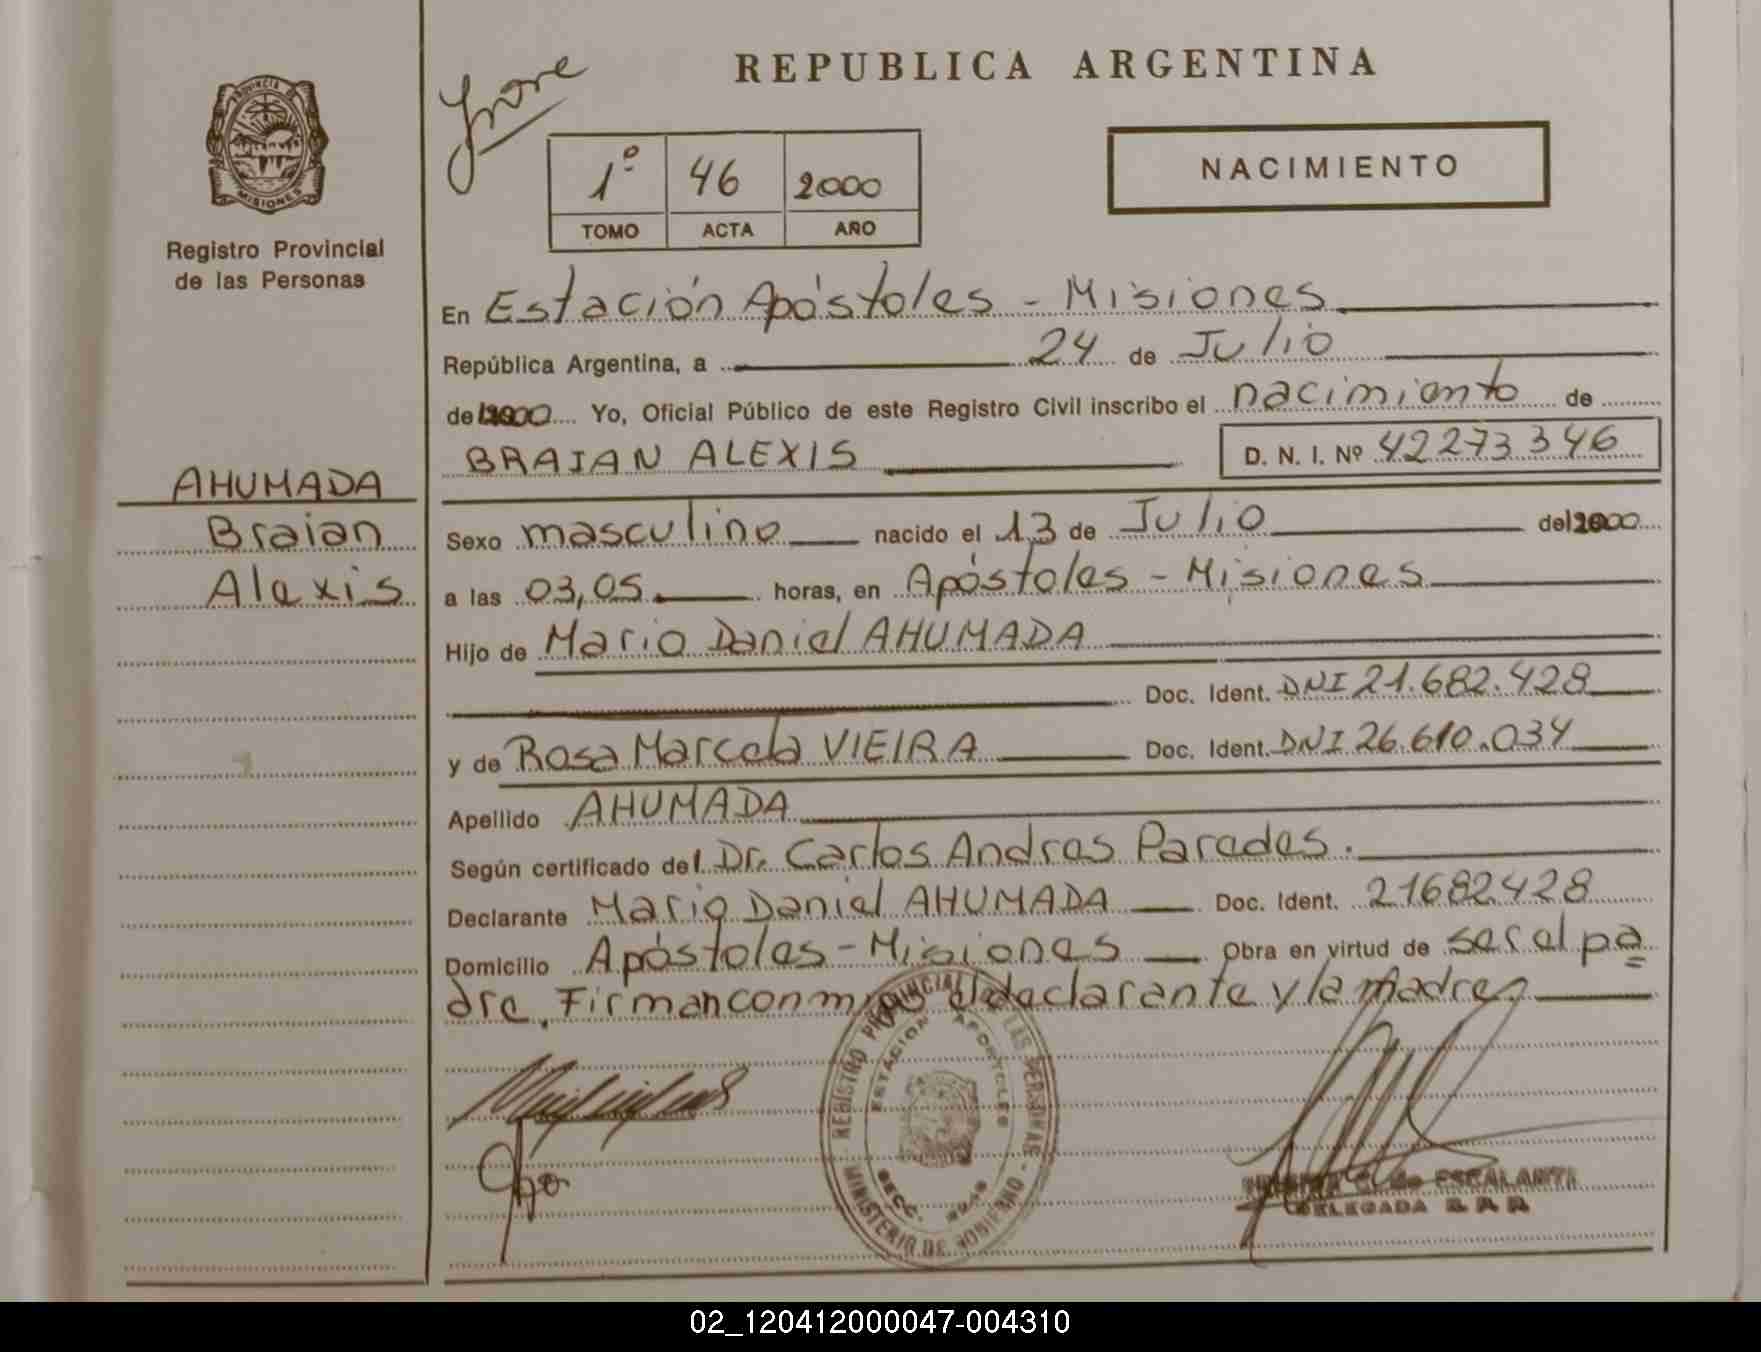 REPUBLICA ARGENTINA
PROVINCIA DE
MISIONES
Registro Provincial
de las Personas
1º 46 2000
TOMO ACTA AÑO
NACIMIENTO
En Estación Apóstoles - Misiones
República Argentina, a 24 de Julio
de 2000 Yo, Oficial Público de este Registro Civil inscribo el nacimiento de
BRAIAN ALEXIS D. N. I. Nº 42273346
AHUMADA
Braian
Alexis
Sexo masculino nacido el 13 de Julio de 2000
a las 03,05 horas, en Apóstoles - Misiones
Hijo de Mario Daniel AHUMADA
Doc. Ident. DNI 21.682.428
y de Rosa Marcela VIEIRA Doc. Ident. DNI 26.610.034
Apellido AHUMADA
Según certificado del Dr. Carlos Andres Paredes.
Declarante Mario Daniel AHUMADA Doc. Ident. 21682428
Domicilio Apóstoles - Misiones Obra en virtud de ser el pa=
dre. Firman conmigo el declarante y la madre
REGISTRO PROVINCIAL DE LAS PERSONAS - MINISTERIO DE GOBIERNO -
ESTACION APOSTOLES
SECC.
de ESCALANTE
DELEGADA
02_120412000047-004310